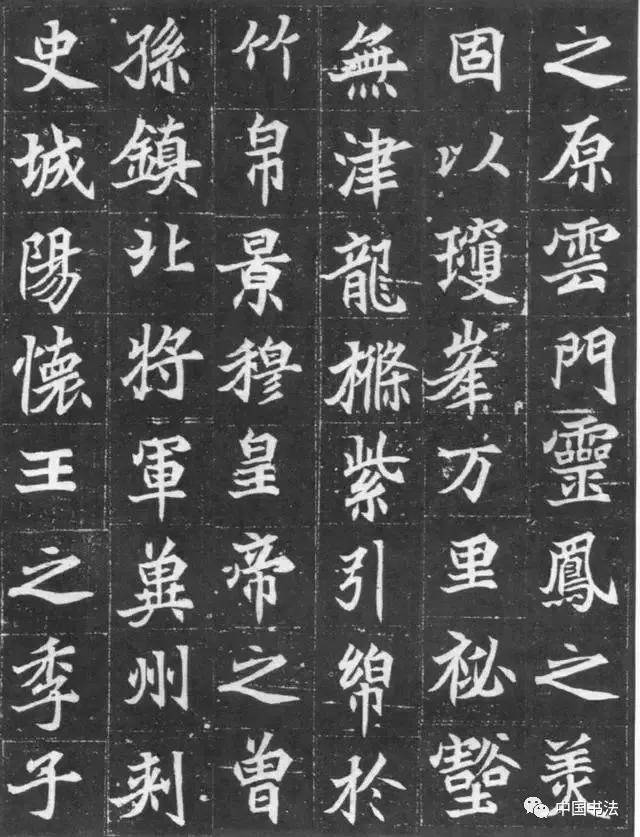 之原雲門靈鳳之美
固以瓊峯万里祕壑
無津龍樤紫引綿於
竹帛景穆皇帝之曽
孫鎮北將軍兾州刾
史城陽懷王之季子
中国书法